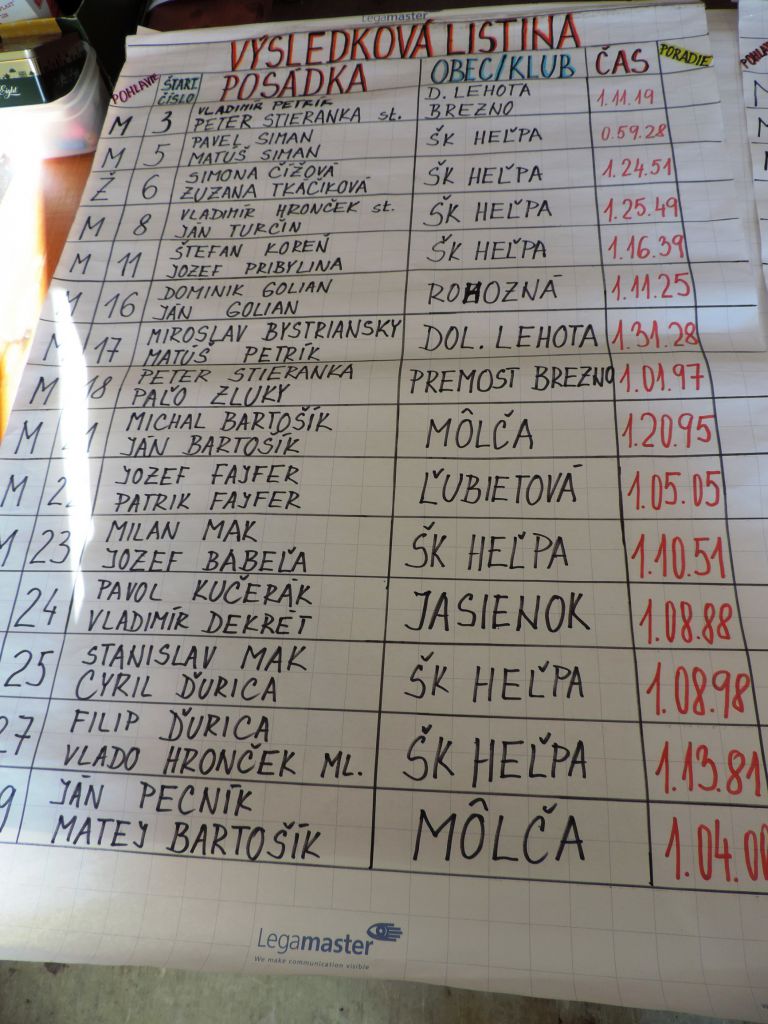 Legamaster
VÝSLEDKOVÁ LISTINA
POHLAVIE ŠTART. ČÍSLO POSÁDKA OBEC/KLUB ČAS PORADIE
M 3 VLADIMÍR PETRÍK D. LEHOTA 1.11.19
PETER STIERANKA st. BREZNO
M 5 PAVEL SIMAN ŠK HEĽPA 0.59.28
MATÚŠ SIMAN
Ž 6 SIMONA ČÍŽOVÁ ŠK HEĽPA 1.24.51
ZUZANA TKÁČIKOVÁ
M 8 VLADIMÍR HRONČEK st. ŠK HEĽPA 1.25.49
JÁN TURČIN
M 11 ŠTEFAN KOREŇ ŠK HEĽPA 1.16.39
JOZEF PRIBYLINA
M 16 DOMINIK GOLIAN ROHOZNÁ 1.11.25
JÁN GOLIAN
M 17 MIROSLAV BYSTRIANSKY DOL. LEHOTA 1.31.28
MATÚŠ PETRÍK
M 18 PETER STIERANKA PREMOST BREZNO 1.01.97
PAĽO ZLUKY
M MICHAL BARTOŠÍK MÔLČA 1.20.95
JÁN BARTOŠÍK
M JOZEF FAJFER ĽUBIETOVÁ 1.05.05
PATRIK FAJFER
M 23 MILAN MAK ŠK HEĽPA 1.10.51
JOZEF BABEĽA
24 PAVOL KUČERÁK JASIENOK 1.08.88
VLADIMÍR DEKRÉT
25 STANISLAV MAK ŠK HEĽPA 1.08.98
CYRIL ĎURICA
27 FILIP ĎURICA ŠK HEĽPA 1.13.81
VLADO HRONČEK ML.
9 JÁN PECNÍK MÔLČA 1.04.00
MATEJ BARTOŠÍK
Legamaster
We make communication visible